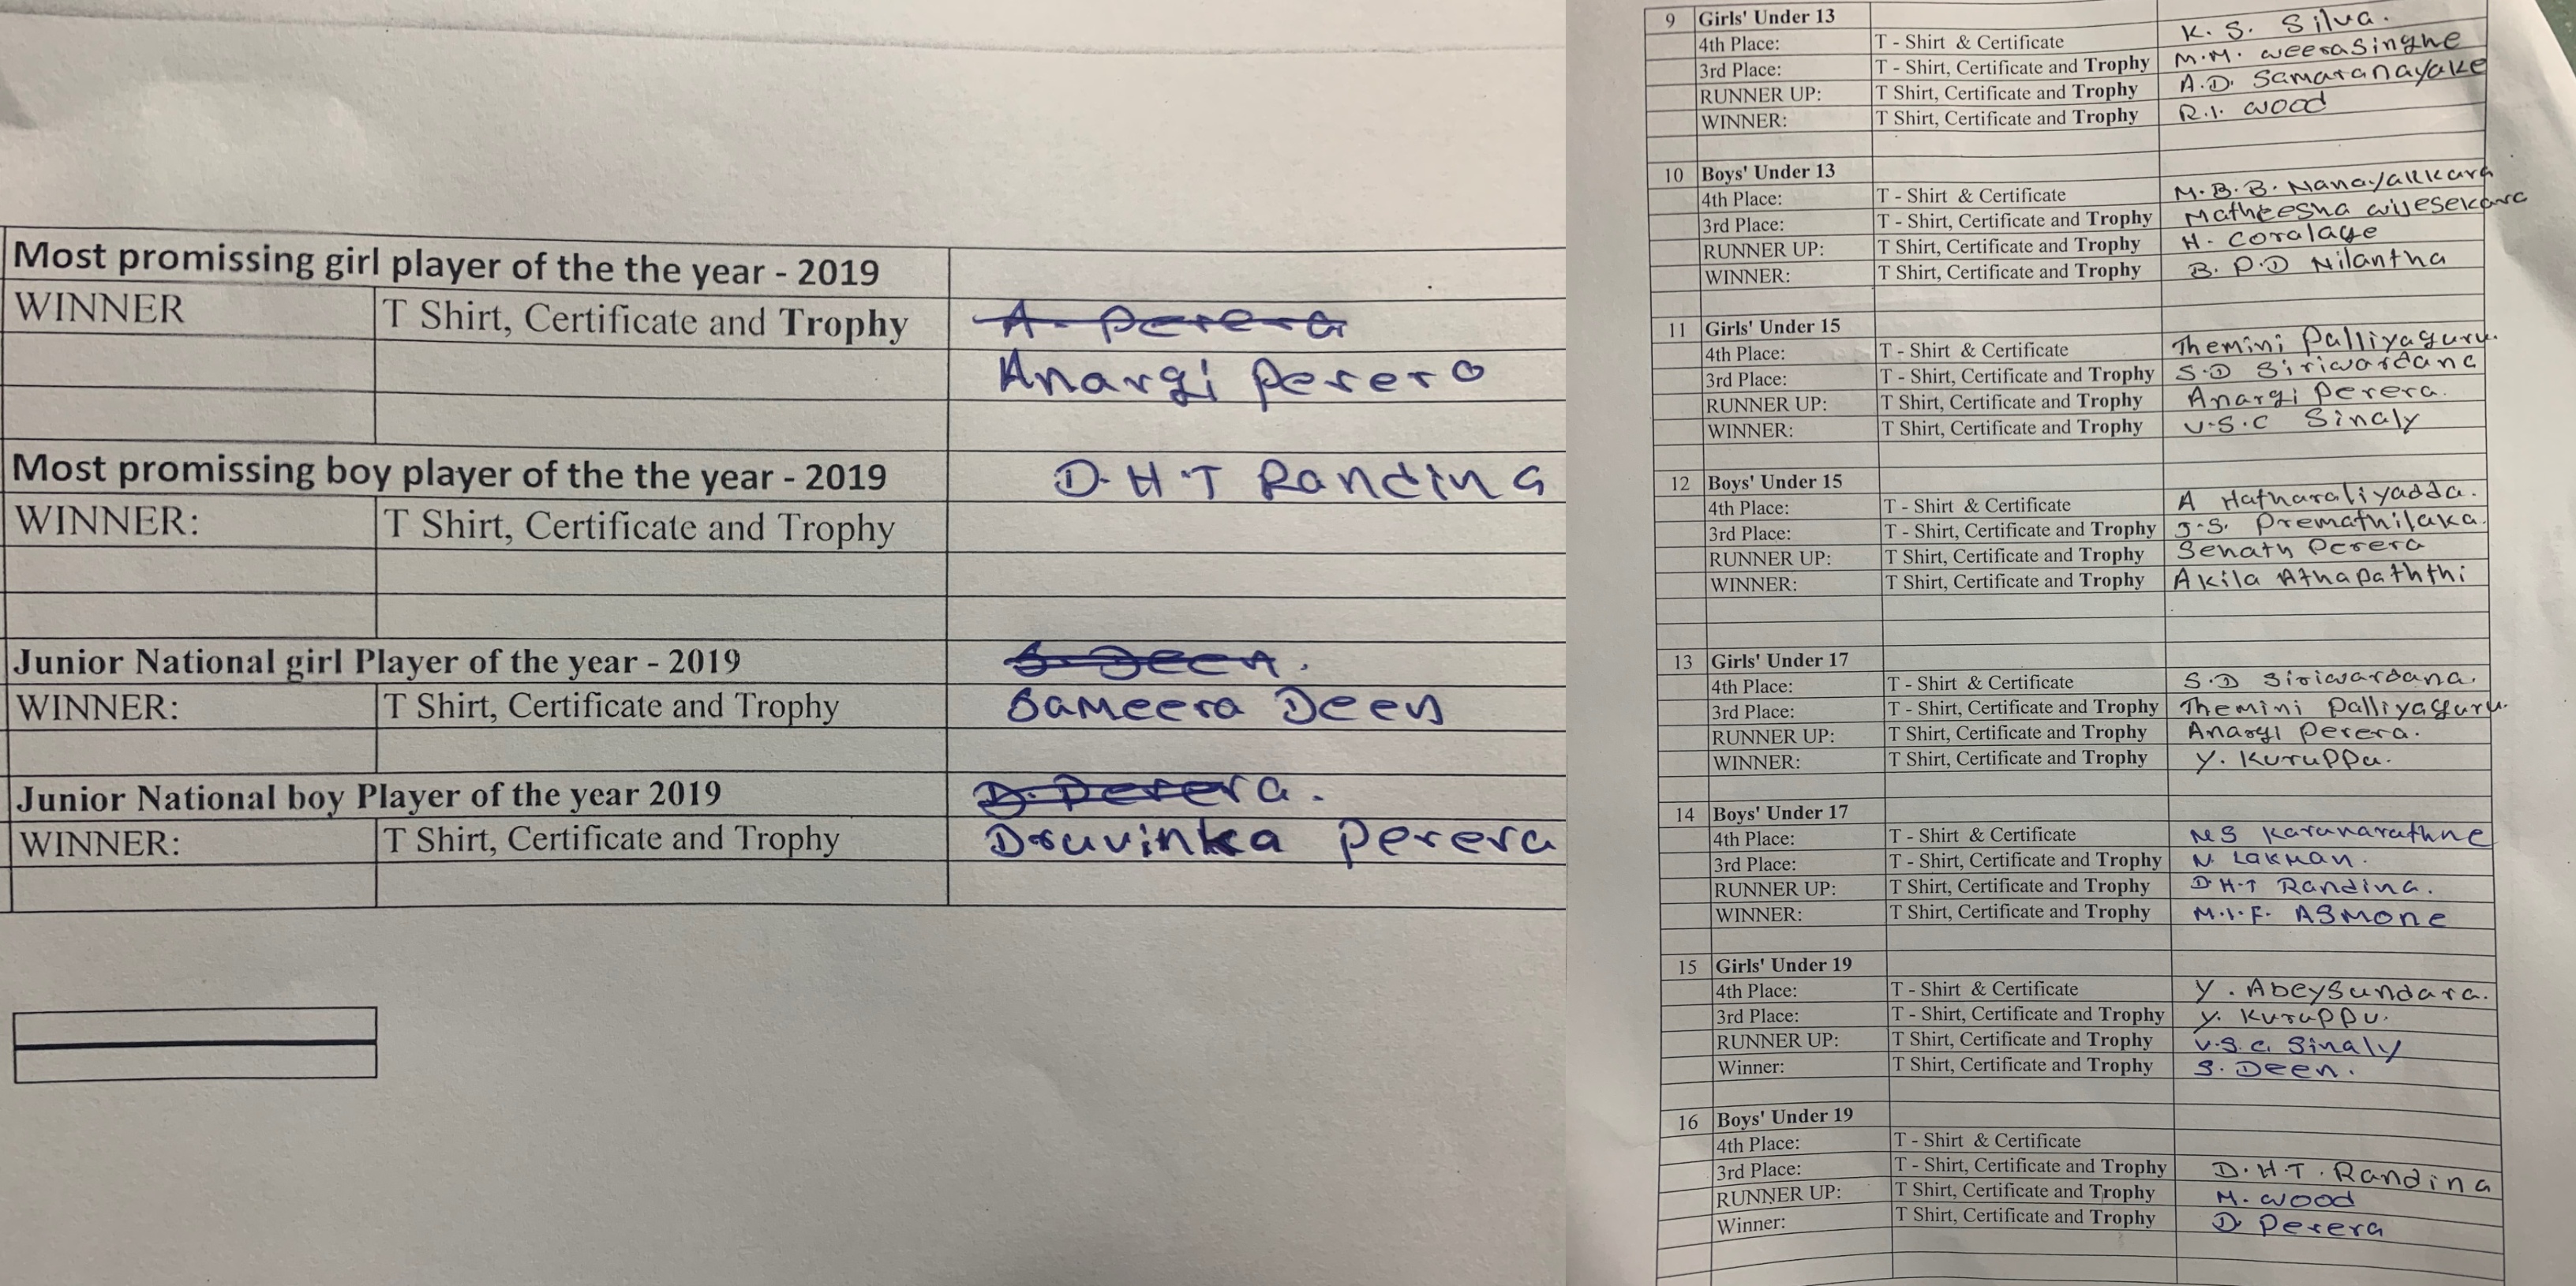 Most promissing girl player of the the year - 2019
WINNER T Shirt, Certificate and Trophy A. Perera
Anargi Perera
Most promissing boy player of the the year - 2019 D.H.T Randina
WINNER: T Shirt, Certificate and Trophy
Junior National girl Player of the year - 2019 S. Deen.
WINNER: T Shirt, Certificate and Trophy Sameera Deen
Junior National boy Player of the year 2019 D. Perera.
WINNER: T Shirt, Certificate and Trophy Druvinka Perera
9 Girls' Under 13
4th Place: T - Shirt & Certificate K. S. Silva.
3rd Place: T - Shirt, Certificate and Trophy M.M. Weerasinghe
RUNNER UP: T Shirt, Certificate and Trophy A.D. Samaranayake
WINNER: T Shirt, Certificate and Trophy R.I. Wood
10 Boys' Under 13
4th Place: T - Shirt & Certificate M.B.B. Nanayakkara
3rd Place: T - Shirt, Certificate and Trophy Matheesha Wijesekara
RUNNER UP: T Shirt, Certificate and Trophy H. Coralage
WINNER: T Shirt, Certificate and Trophy B. P.D Nilantha
11 Girls' Under 15
4th Place: T - Shirt & Certificate Themini Palliyaguru.
3rd Place: T - Shirt, Certificate and Trophy S.D Siriwardana
RUNNER UP: T Shirt, Certificate and Trophy Anargi Perera.
WINNER: T Shirt, Certificate and Trophy V.S.C Sinaly
12 Boys' Under 15
4th Place: T - Shirt & Certificate A Hatharaliyadda.
3rd Place: T - Shirt, Certificate and Trophy J.S. Premathilaka.
RUNNER UP: T Shirt, Certificate and Trophy Senath Perera
WINNER: T Shirt, Certificate and Trophy Akila Athapaththi
13 Girls' Under 17
4th Place: T - Shirt & Certificate S.D Siriwardana.
3rd Place: T - Shirt, Certificate and Trophy Themini Palliyaguru.
RUNNER UP: T Shirt, Certificate and Trophy Anargi Perera.
WINNER: T Shirt, Certificate and Trophy Y. Kuruppu.
14 Boys' Under 17
4th Place: T - Shirt & Certificate NS Karunarathne
3rd Place: T - Shirt, Certificate and Trophy N. Lakman.
RUNNER UP: T Shirt, Certificate and Trophy D.H.T Randina.
WINNER: T Shirt, Certificate and Trophy M.I.F. ASMone
15 Girls' Under 19
4th Place: T - Shirt & Certificate Y. Abeysundara.
3rd Place: T - Shirt, Certificate and Trophy Y. Kuruppu.
RUNNER UP: T Shirt, Certificate and Trophy V.S.C. Sinaly
Winner: T Shirt, Certificate and Trophy S. Deen.
16 Boys' Under 19
4th Place: T - Shirt & Certificate
3rd Place: T - Shirt, Certificate and Trophy D.H.T. Randina
RUNNER UP: T Shirt, Certificate and Trophy M. Wood
Winner: T Shirt, Certificate and Trophy D. Perera